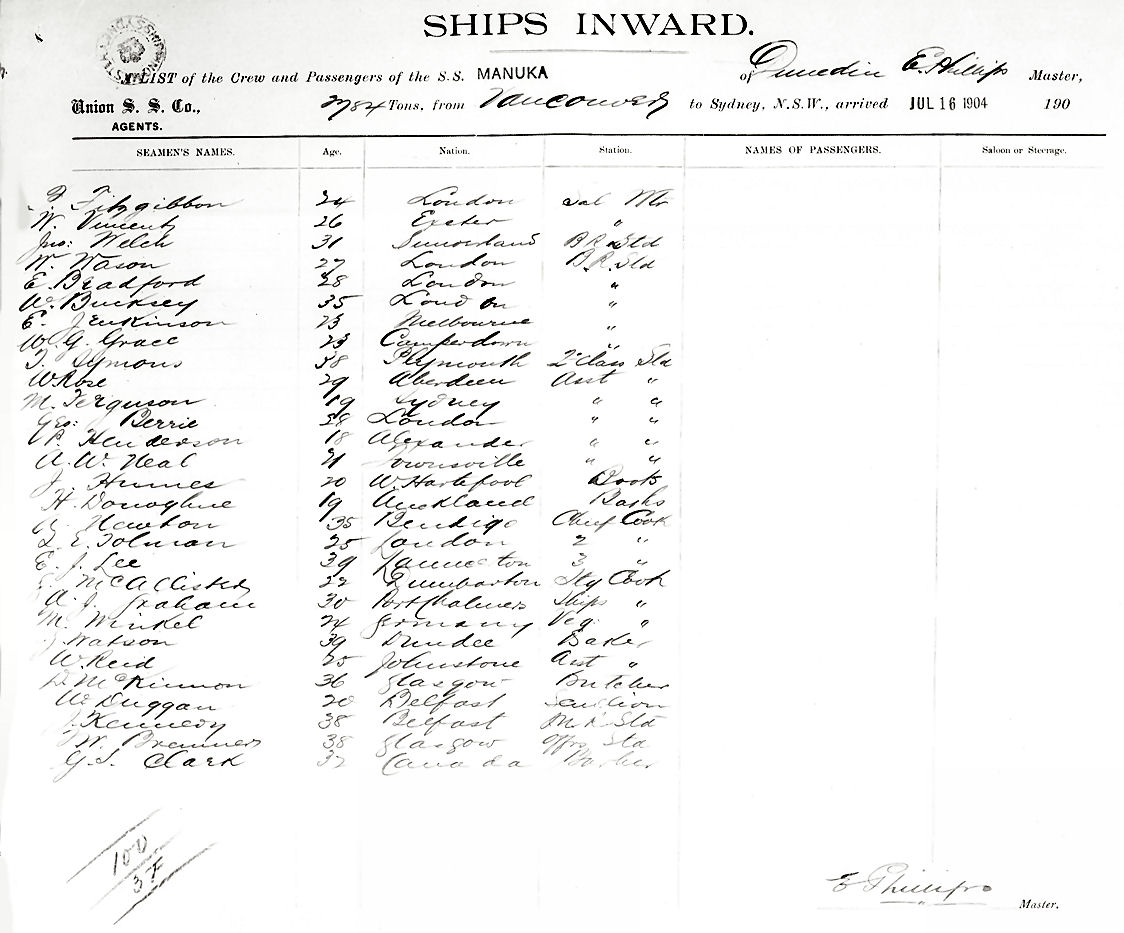 SHIPS INWARD.
A LIST of the Crew and Passengers of the S.S. MANUKA of Dunedin E. Phillips Master,
Union S. S. Co., 2784 Tons, from Vancouver to Sydney, N.S.W., arrived JUL 16 1904 190
AGENTS.
SEAMEN'S NAMES. Age. Nation. Station. NAMES OF PASSENGERS. Saloon or Steerage.
Fitzgibbon 24 London Sal
W. Vincent 26 Exeter "
Jno: Welch 31 Sunderland B.R. Std
W. Wason 27 London B.R. Std
E. Bradford 28 London "
W. Bucksey 35 London "
E. Jenkinson 23 Melbourne "
W. G. Grace 23 Camperdown "
T. Symons 38 Plymouth 2 Class Std
W Rose 29 Aberdeen Asst "
M. Ferguson 19 Sydney " "
Geo: Berrie London " "
P. Henderson 18 Alexander " "
A. W. Neal 21 Townsville " "
J. Humes 20 W. Hartlepool
H. Donoghue 19 Auckland
Newton 35 Bendigo Chief Cook
E. Tolman 25 London 2 "
E. J. Lee 39 Launceton 3 "
McAllister 22 Dumbarton Cook
A. J. Graham 30 Port Chalmers Ships "
M. Winkel 24 Germany Veg: "
J Watson 39 Dundee Baker
W. Reid 25 Johnstone Asst "
D. McKinnon 36 Glasgow Butcher
W. Duggan 20 Belfast
J. Kennedy 38 Belfast Std
J. W. Bremner 38 Glasgow Offrs Std
G. S. Clark 32 Canada Barber
100
37
E Phillips
Master.